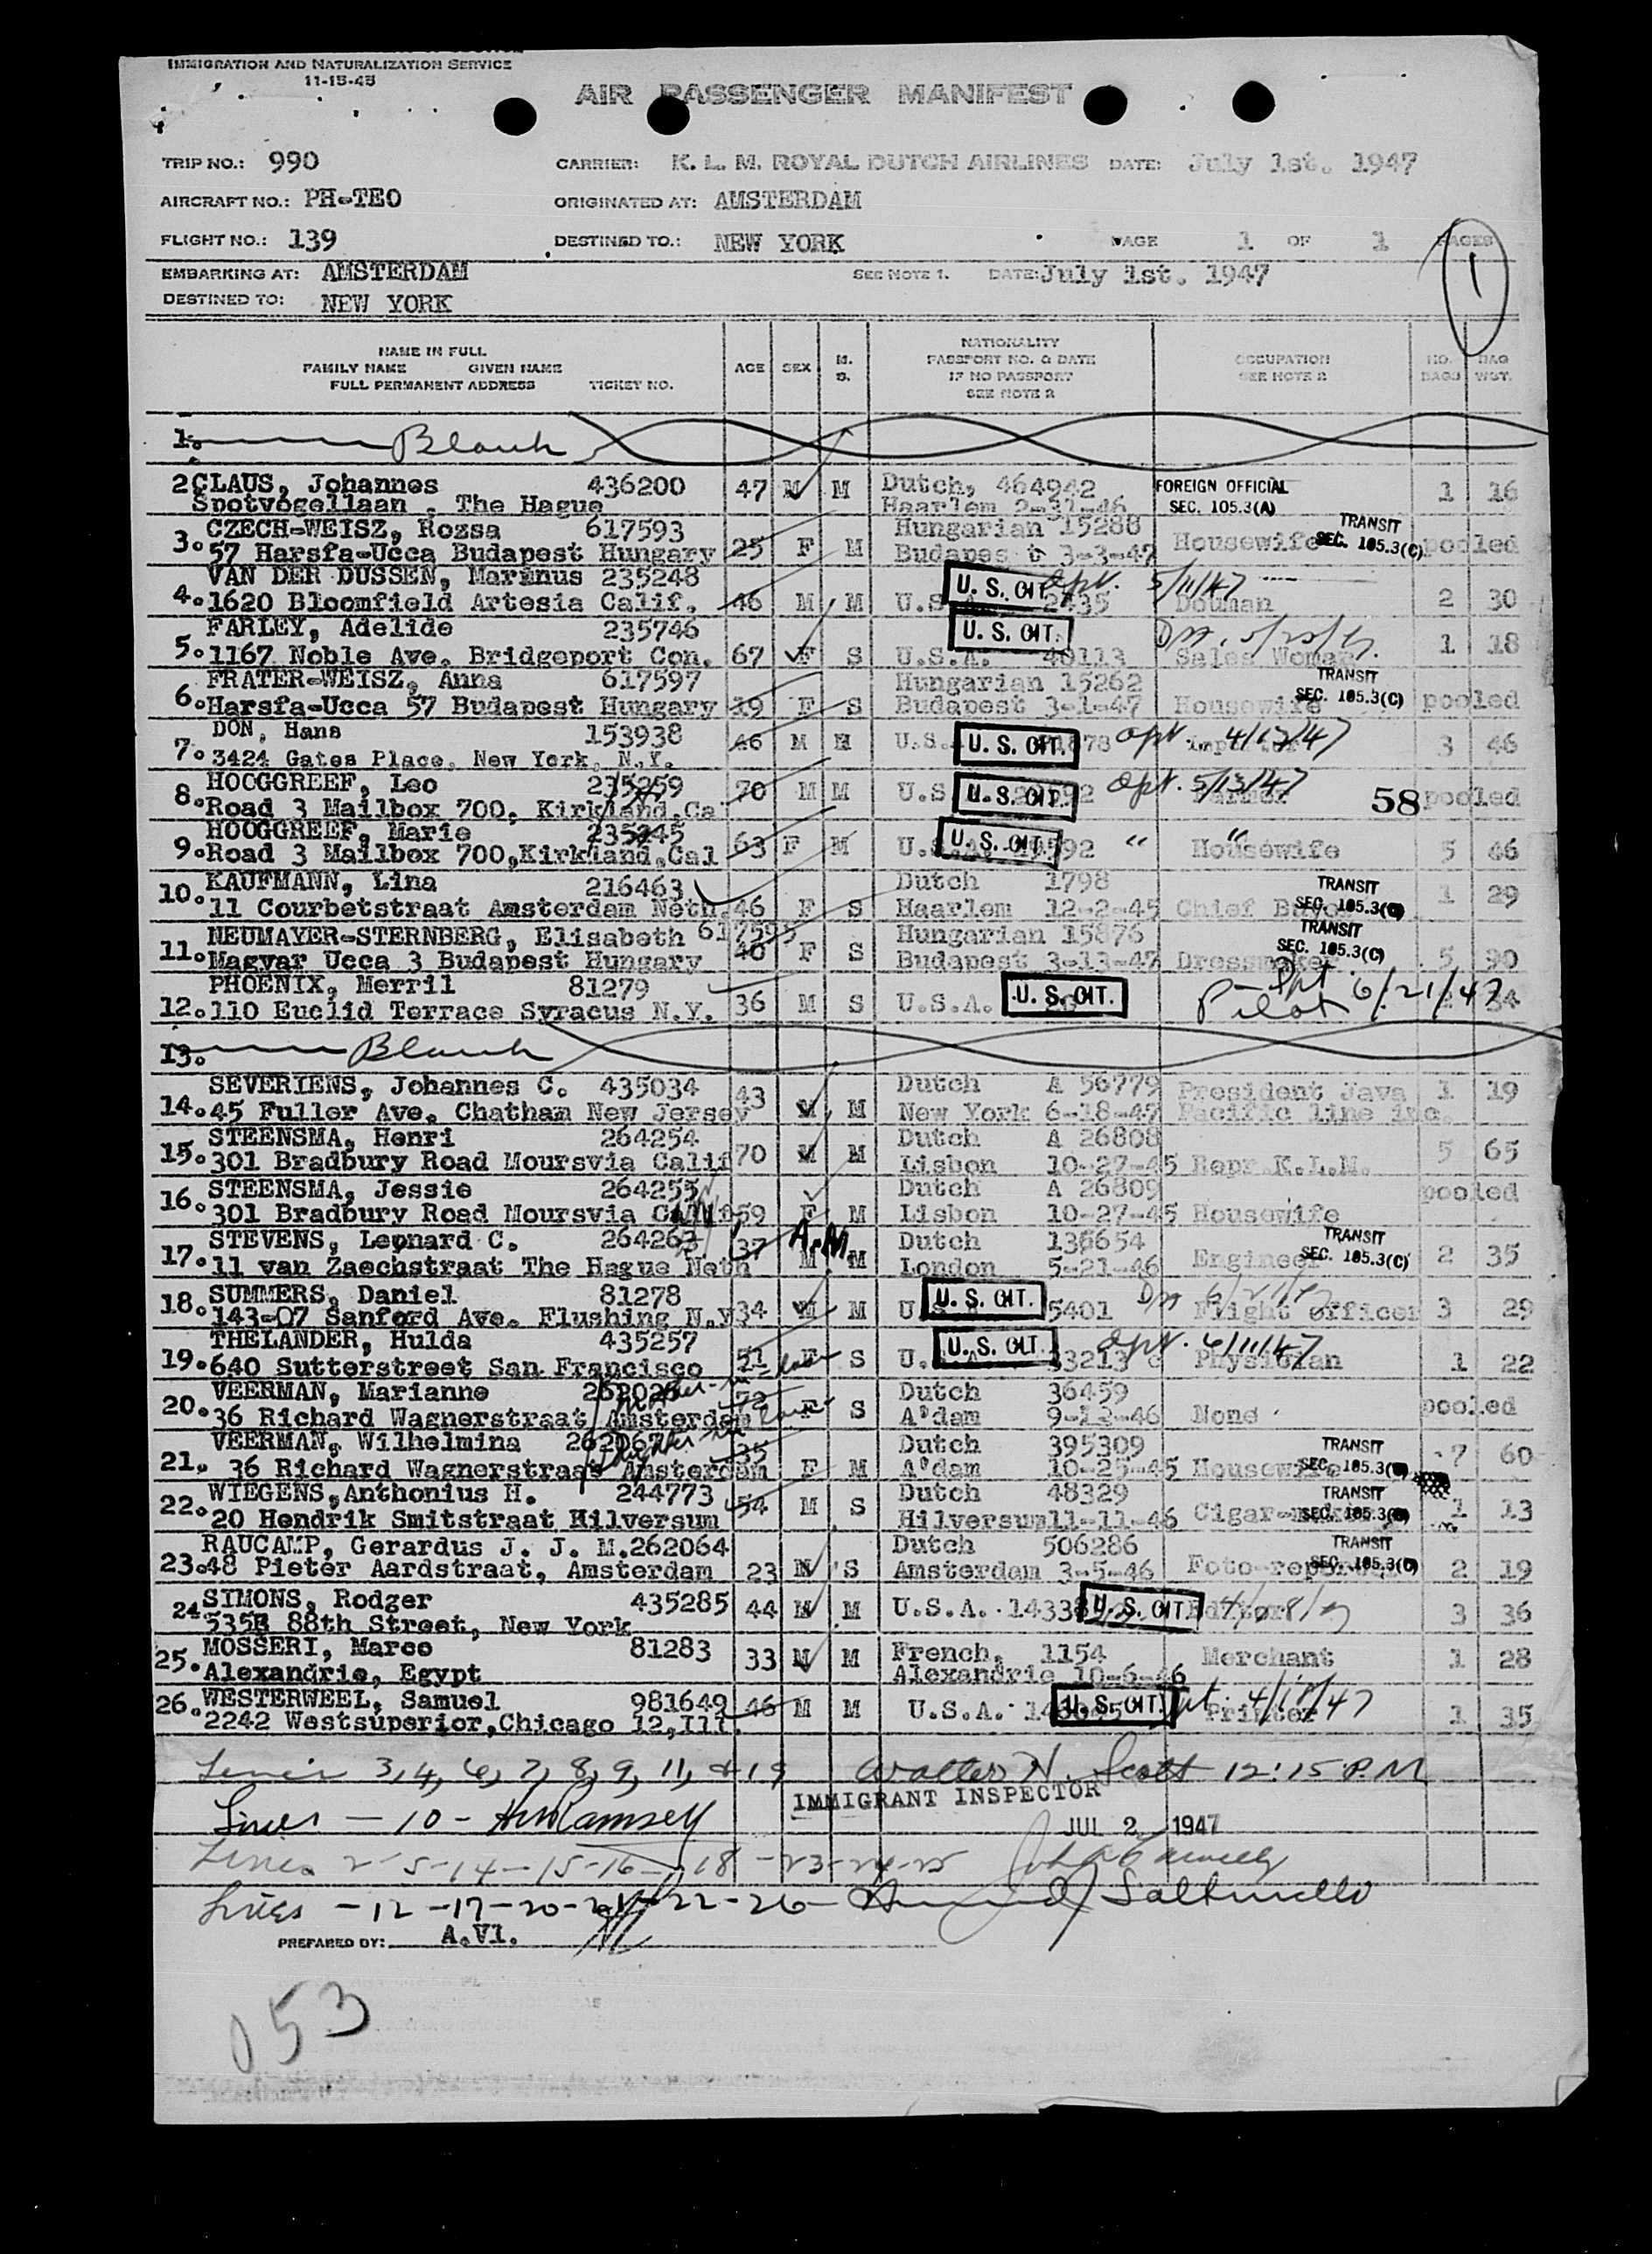 IMMIGRATION AND NATURALIZATION SERVICE
11-15-45
AIR PASSENGER MANIFEST
TRIP NO.: 990 CARRIER: K. L. M. ROYAL DUTCH AIRLINES DATE: July 1st. 1947
AIRCRAFT NO.: PH-TEO ORIGINATED AT: AMSTERDAM
FLIGHT NO.: 139 DESTINED TO.: NEW YORK PAGE 1 OF 1 PAGES
1
EMBARKING AT: AMSTERDAM SEE NOTE 1. DATE: July 1st. 1947
DESTINED TO: NEW YORK
NAME IN FULL
FAMILY NAME GIVEN NAME
FULL PERMANENT ADDRESS TICKET NO.
AGE SEX M. S.
NATIONALITY
PASSPORT NO. & DATE
IF NO PASSPORT
SEE NOTE 2
OCCUPATION
SEE NOTE 2
NO. BAGS
BAG WGT.
1. Blank
2 CLAUS, Johannes 436200 47 M M Dutch, 464942 FOREIGN OFFICIAL 1 16
Spotvogellaan , The Hague Haarlem 2-31-46 SEC. 105.3(A)
CZECH-WEISZ, Rozsa 617593 Hungarian 15288 TRANSIT
3. 57 Harsfa-Ucca Budapest Hungary 25 F M Budapes t 3-3-47 Housewife SEC. 105.3(C) pooled
VAN DER DUSSEN, Marinus 235248 U. S. CIT. Dpt. 5/11/47
4. 1620 Bloomfield Artesia Calif. 46 M M U.S. 2435 2 30
FARLEY, Adelide 235746 U. S. CIT.
5. 1167 Noble Ave. Bridgeport Con. 67 F S U.S.A. 48113 Sales Woman 1 18
FRATER-WEISZ, Anna 617597 Hungarian 15262 TRANSIT
6. Harsfa-Ucca 57 Budapest Hungary F S Budapest 3-1-47 Housewife SEC. 105.3(C) pooled
DON, Hans 153938
7. 3424 Gates Place, New York, N.Y. 46 M M U.S. U. S. CIT. Dpt. 4/12/47 3 46
HOOGGREEF, Leo 235259
8. Road 3 Mailbox 700, Kirkland, Cal 70 M M U.S U. S. CIT. Dpt. 5/13/47 Farmer 58 pooled
HOOGGREEF, Marie
9. Road 3 Mailbox 700, Kirkland, Cal 63 F M U. S. CIT. " " Housewife 5 46
KAUFMANN, Lina 216463 Dutch 1798 TRANSIT
10. 11 Courbetstraat Amsterdam Neth. 46 F S Haarlem 12-2-45 Chief Buyer SEC. 105.3(C) 1 29
NEUMAYER-STERNBERG, Elisabeth 617595 Hungarian 15876 TRANSIT
11. Magyar Ucca 3 Budapest Hungary 40 F S Budapest 3-13-47 Dressmaker SEC. 105.3(C) 5 90
PHOENIX, Merril 81279
12. 110 Euclid Terrace Syracus N.Y. 36 M S U.S.A. U. S. CIT. Pilot 6/21/47 34
13. Blank
SEVERIENS, Johannes C. 435034 Dutch A 56779 President Java 1 19
14. 45 Fuller Ave. Chatham New Jersey 43 M M New York 6-18-47 Pacific line inc.
STEENSMA, Henri 264254 Dutch A 26808
15. 301 Bradbury Road Moursvia Calif 70 M M Lisbon 10-27-45 Repr K.L.M. 5 65
STEENSMA, Jessie 264255 Dutch A 26809 pooled
16. 301 Bradbury Road Moursvia Calif 59 F M Lisbon 10-27-45 Housewife
STEVENS, Leonard C. 264263 A.M. Dutch 136654 TRANSIT
17. 11 van Zaechstraat The Hague Neth 37 M M London 5-21-46 Engineer SEC. 105.3(C) 2 35
SUMMERS, Daniel 81278 U. S. CIT.
18. 143-07 Sanford Ave. Flushing N.Y 34 M M 5401 Flight officer 3 29
THELANDER, Hulda 435257 U. S. CIT. Dpt. 6/11/47
19. 640 Sutterstreet San Francisco 51 F S U. 33213 Physician 1 22
VEERMAN, Marianne 262026 Dutch 36459
20. 36 Richard Wagnerstraat Amsterdam 72 F S A'dam 9-12-46 None pooled
VEERMAN, Wilhelmina Dutch 395309 TRANSIT 7 60
21. 36 Richard Wagnerstraat Amsterdam 35 F M A'dam 10-25-45 Housewife SEC. 105.3(C)
WIEGENS, Anthonius H. 244773 Dutch 48329 TRANSIT
22. 20 Hendrik Smitstraat Hilversum 54 M S Hilversum 11-11-46 Cigar-maker SEC. 105.3(C) 1 13
RAUCAMP, Gerardus J. J. M. 262064 Dutch 506286 TRANSIT
23. 48 Pieter Aardstraat, Amsterdam 23 M S Amsterdam 3-5-46 Foto-reporter SEC. 105.3(C) 2 19
24 SIMONS, Rodger 435285 44 M M U.S.A. U. S. CIT. Editor 3 36
535E 88th Street, New York
25. MOSSERI, Marco 81283 33 M M French, 1154 Merchant 1 28
Alexandrie, Egypt Alexandrie 10-6-46
26. WESTERWEEL, Samuel 981649 46 M M U.S.A. U. S. CIT. 4/18/47 Printer 1 35
2242 Westsuperior, Chicago 12, Ill.
Lines 3, 4, 6, 7, 8, 9, 11, & 19 Walter H. Scott 12:15 P.M
IMMIGRANT INSPECTOR
Lines - 10 - Ramsey JUL 2 1947
Lines 2-5-14-15-16-18-23-24-25
Lines -12-17-20-21-22-26-
PREPARED BY: A.Vl.
053